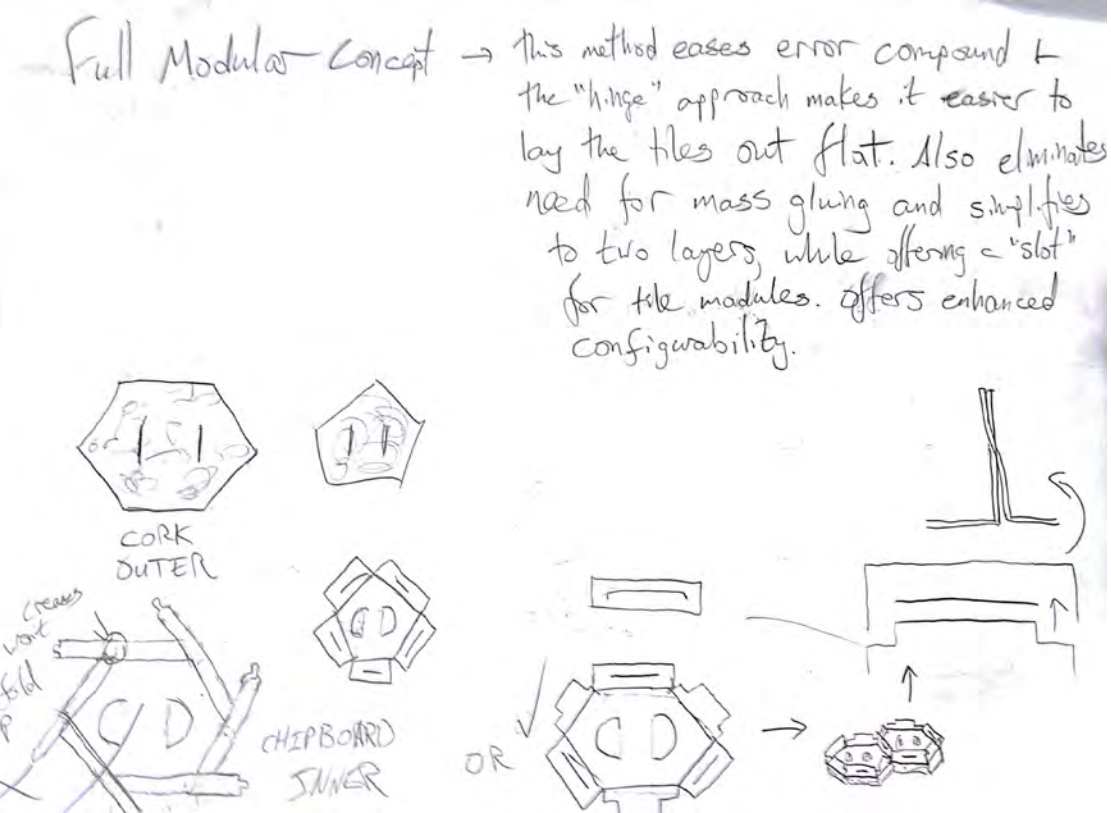 Full Modular Concept → this method eases error compound &
the "hinge" approach makes it easier to
lay the tiles out flat. Also eliminates
need for mass gluing and simplifies
to two layers, while offering a "slot"
for tile modules. offers enhanced
configurability.
CORK
OUTER
creases
won't
fold
CHIPBOARD
INNER
OR